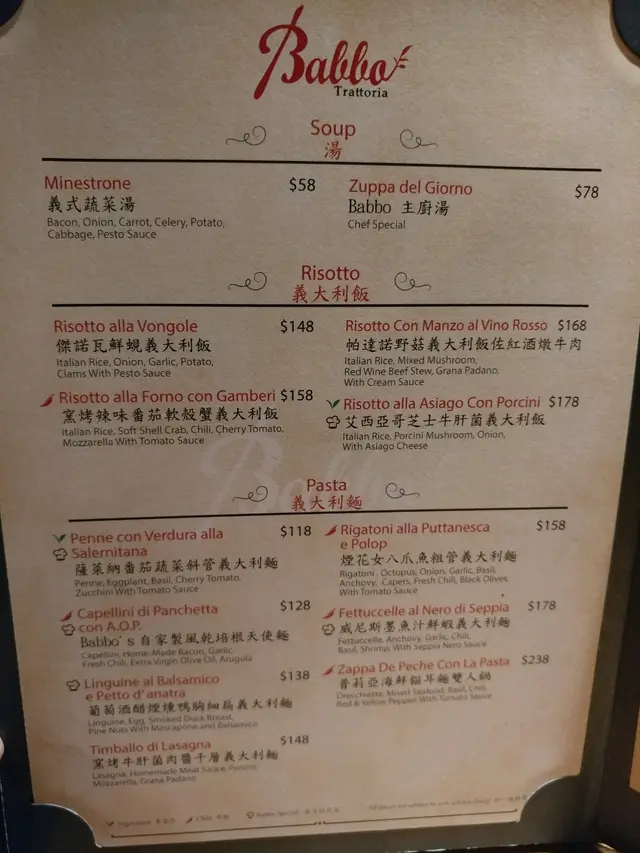 Babbo
Trattoria
Soup
湯
Minestrone $58
義式蔬菜湯
Bacon, Onion, Carrot, Celery, Potato,
Cabbage, Pesto Sauce
Zuppa del Giorno $78
Babbo 主廚湯
Chef Special
Risotto
義大利飯
Risotto alla Vongole $148
傑諾瓦鮮蜆義大利飯
Italian Rice, Onion, Garlic, Potato,
Clams With Pesto Sauce
Risotto Con Manzo al Vino Rosso $168
帕達諾野菇義大利飯佐紅酒燉牛肉
Italian Rice, Mixed Mushroom,
Red Wine Beef Stew, Grana Padano,
With Cream Sauce
Risotto alla Forno con Gamberi $158
窯烤辣味番茄軟殼蟹義大利飯
Italian Rice, Soft Shell Crab, Chili, Cherry Tomato,
Mozzarella With Tomato Sauce
Risotto alla Asiago Con Porcini $178
艾西亞哥芝士牛肝菌義大利飯
Italian Rice, Porcini Mushroom, Onion,
With Asiago Cheese
Pasta
義大利麵
Penne con Verdura alla $118
Salernitana
薩萊納番茄蔬菜斜管義大利麵
Penne, Eggplant, Basil, Cherry Tomato,
Zucchini With Tomato Sauce
Rigatoni alla Puttanesca $158
e Polop
煙花女八爪魚粗管義大利麵
Rigatoni, Octopus, Onion, Garlic, Basil,
Anchovy, Capers, Fresh Chill, Black Olives,
With Tomato Sauce
Capellini di Panchetta $128
con A.O.P.
Babbo's 自家製風乾培根天使麵
Capellini, Home-Made Bacon, Garlic,
Fresh Chili, Extra Virgin Olive Oil, Arugula
Fettuccelle al Nero di Seppia $178
威尼斯墨魚汁鮮蝦義大利麵
Fettuccelle, Anchovy, Garlic, Chili,
Basil, Shrimp, With Seppia Nero Sauce
Linguine al Balsamico $138
e Petto d' anatra
葡萄酒醋煙燻鴨胸細扁義大利麵
Linguine, Egg, Smoked Duck Breast,
Pine Nuts With Mascapone and Balsamico
Zappa De Peche Con La Pasta $238
普莉亞海鮮貓耳麵雙人鍋
Orecchiette, Mixed Seafood, Basil, Chili,
Red & Yellow Pepper With Tomato Sauce
Timballo di Lasagna $148
窯烤牛肝菌肉醬千層義大利麵
Lasagna, Homemade Meat Sauce, Porcini,
Mozzarella, Grana Padano
Vegetarian
Chili
Babbo Special